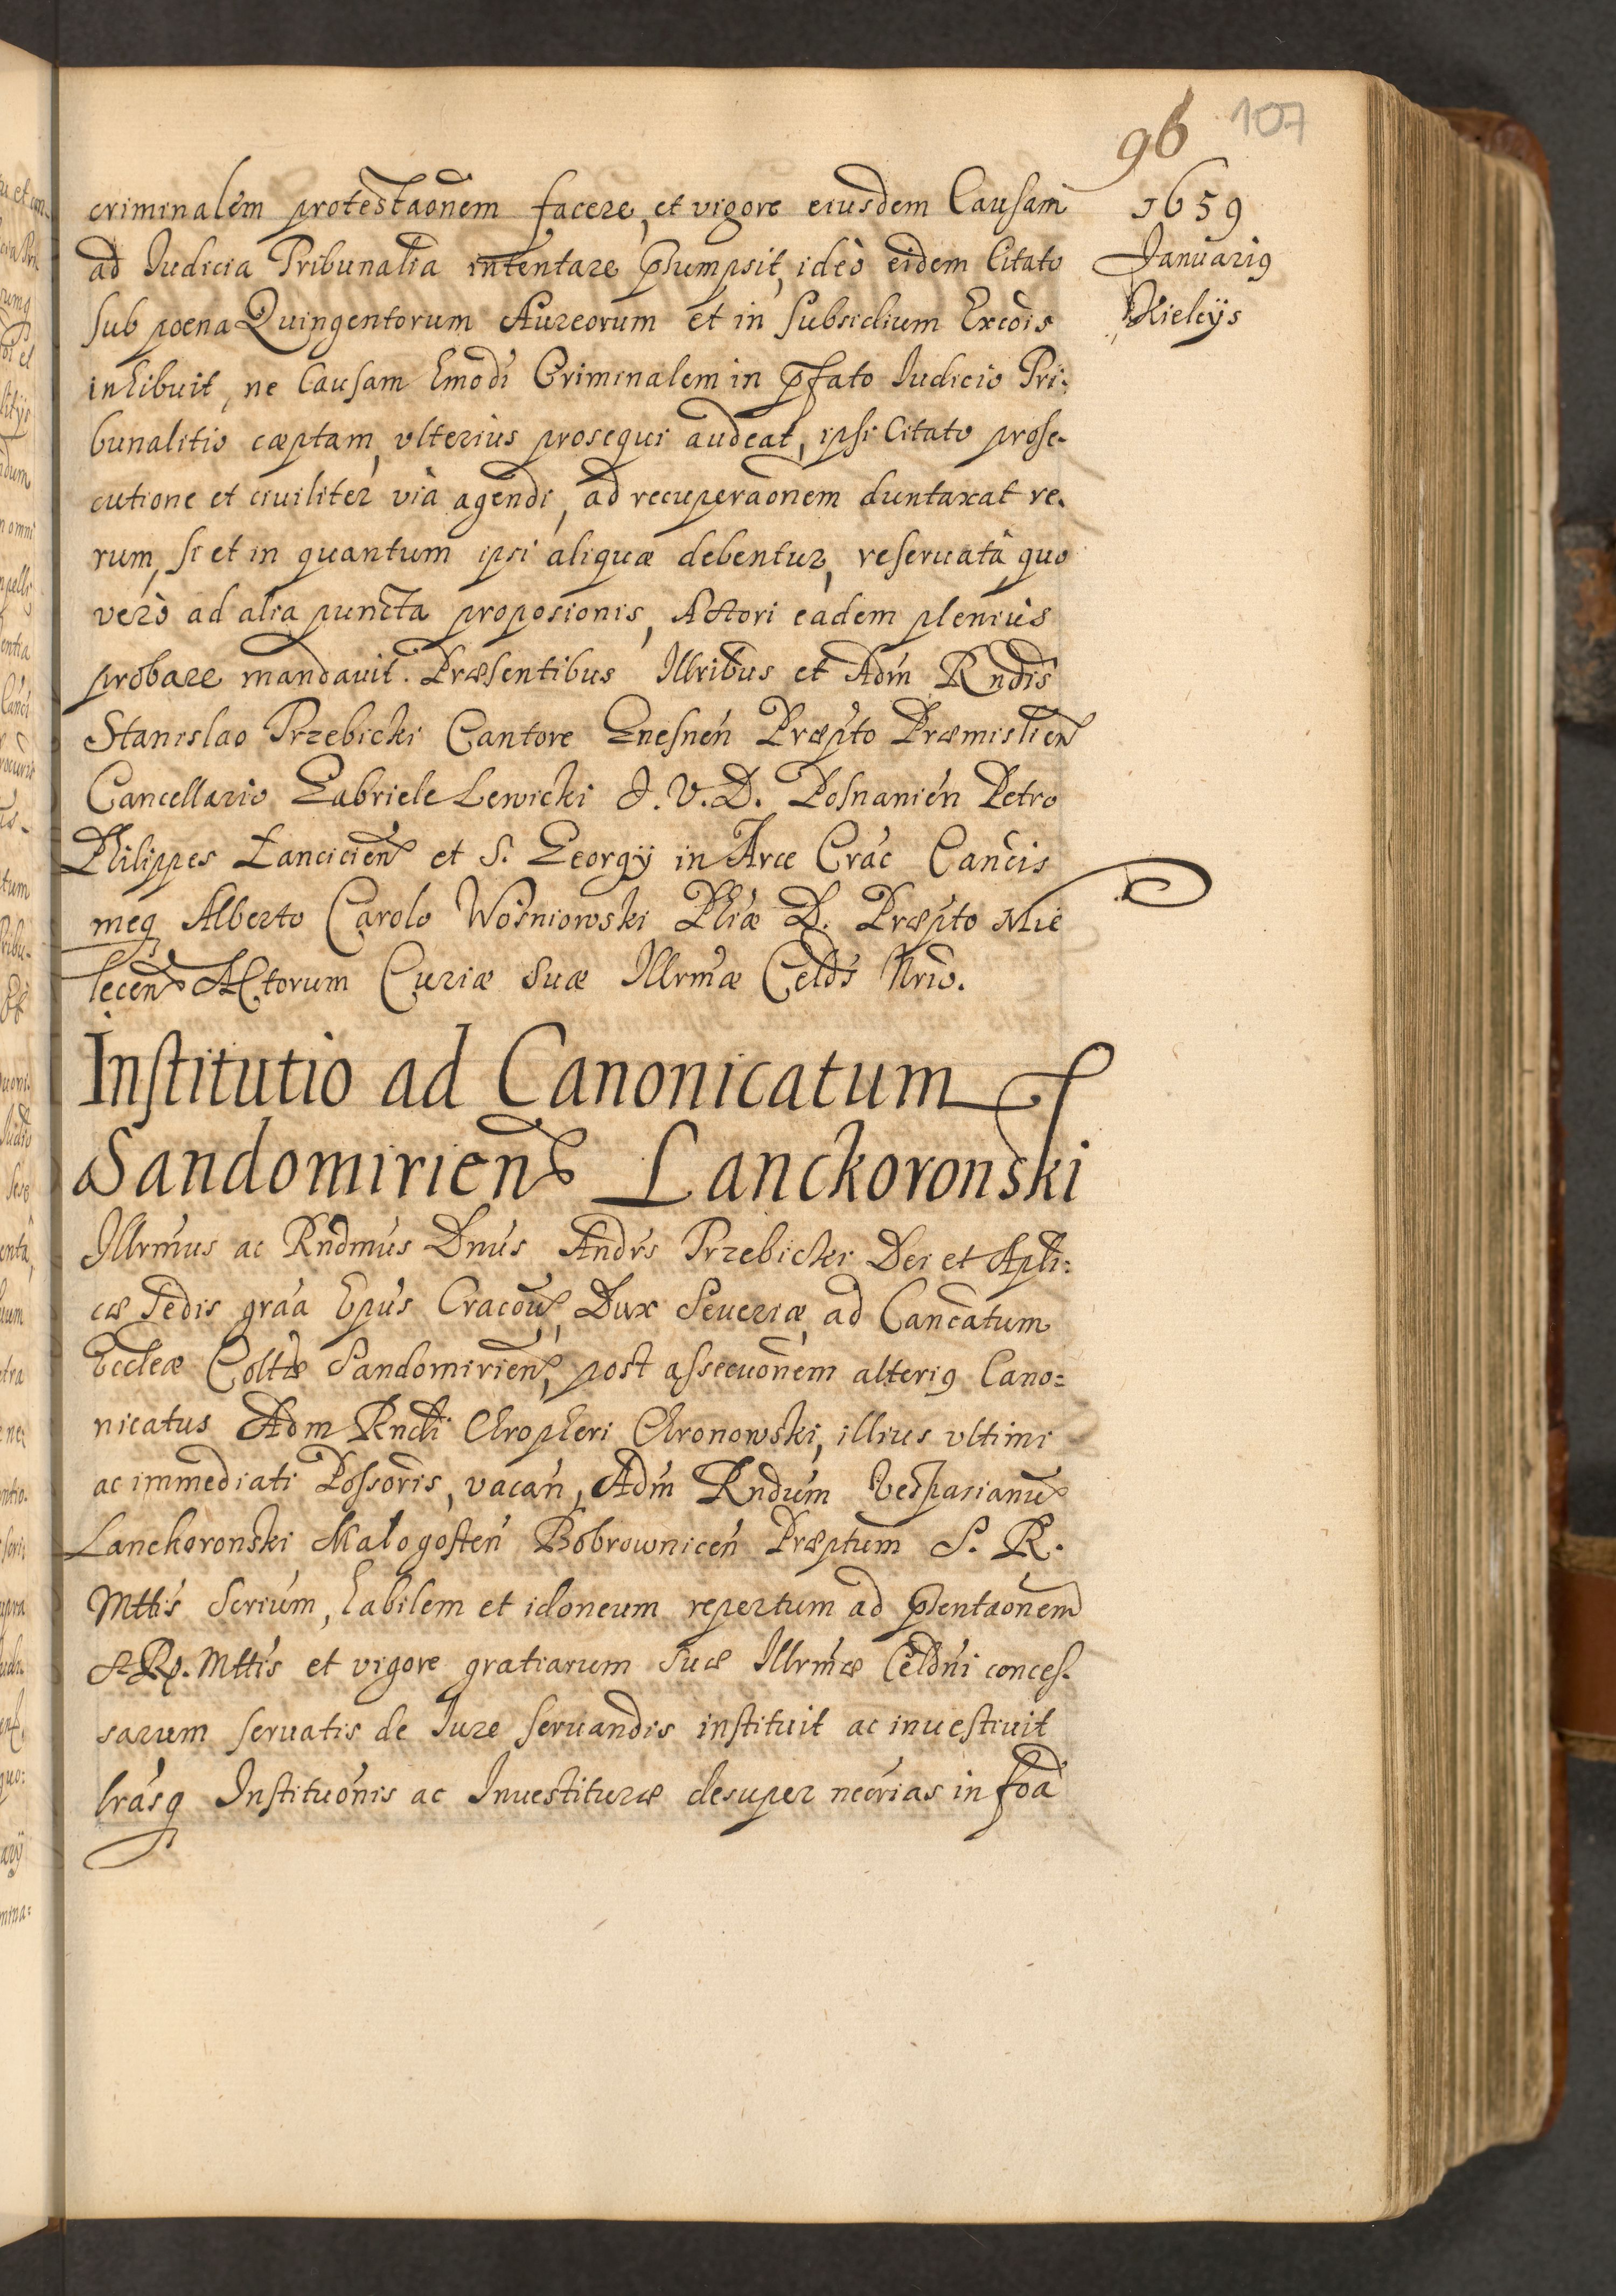 96 107
criminalem protestaonem facere, et vigore eiusdem Causam
1659
ad Iudicia Tribunalia intentare psumpsit, ideò eidem Citato
Januari9
sub poena Quingentorum Aureorum et in subsidium Excois
Kielcijs
inhibuit, ne Causam hmodi Criminalem in pfato Iudicio Tri:
bunalitio cæptam, vlterius prosequi audeat, ipsi Citato prose-
cutione et ciuiliter via agendi, ad recuperaonem duntaxat re-
rum, si et in quantum ipsi aliquæ debentur, reseruatâ, quo
verò ad alia puncta proposionis, Actori eadem pleniùs
probare mandauit. Præsentibus Illribus et Adm Rndis
Stanislao Trzebicki Cantore Gnesnen Præpto Præmislien
Cancellario Gabriele Lewicki J. V. D. Posnanien Petro
Philippes Lancicien et S. Georgij in Arce Crac Cancis
meq Alberto Carolo Wośniowski Phiæ D. Præpto Mie
lecen Actorum Curiæ Suæ Illrmæ Celdis Nrio.
Institutio ad Canonicatum
Sandomirien Lanckoronski
Illrmus ac Rndmus Dnus Andrs Trzebicki Dei et Apli:
cæ Sedis graa Epus Cracou, Dux Seueriæ, ad Cancatum
Eccleæ Coltæ Sandomirien, post assecuonem alteri9 Cano:
nicatus Adm Rndi Chropheri Chronowski, illius vltimi
ac immediati Possoris, vacan, Adm Rndum Vespasianu
Lanckoronski Malogosten Bobrownicen Præptum S. R.
Mttis Scrium, habilem et idoneum repertum ad psentaonem
S. R. Mttis et vigore gratiarum Suæ Illrmæ Celdni conces-
sarum seruatis de Iure seruandis instituit ac inuestiuit
lrasq Instituonis ac Inuestituræ desuper necrias in foa